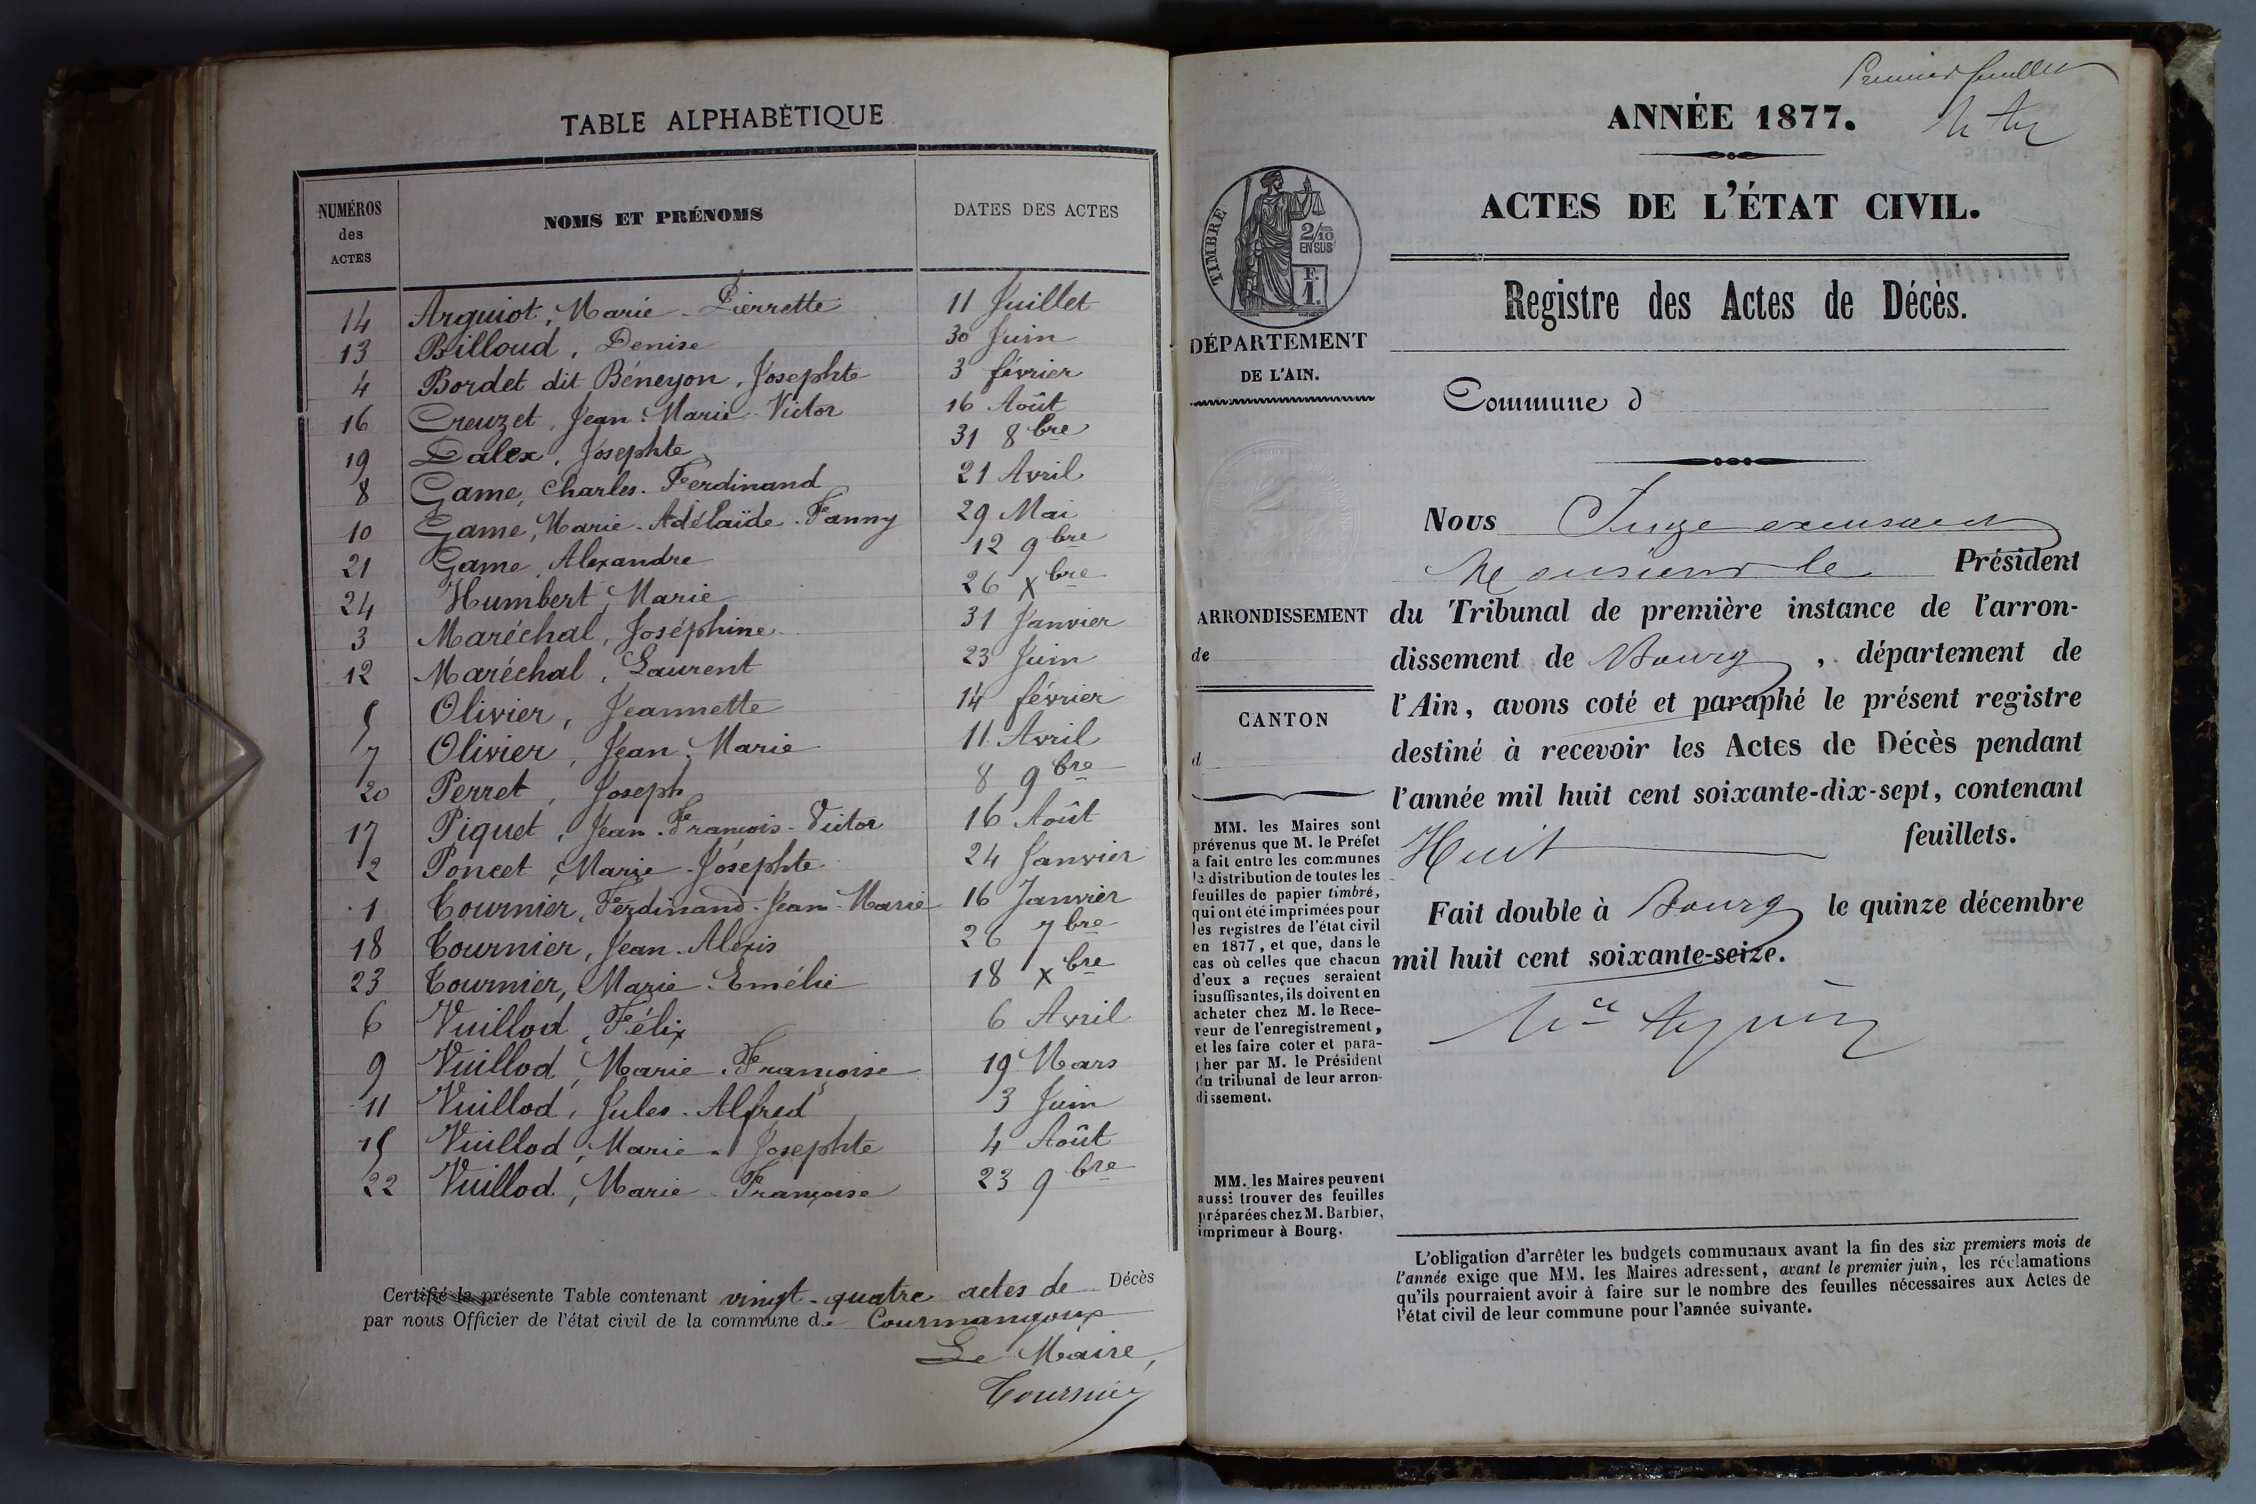 TABLE ALPHABÉTIQUE
NUMÉROS des ACTES NOMS ET PRÉNOMS DATES DES ACTES
14 Arguiot, Marie-Pierrette 11 Juillet
13 Billoud, Denise 30 Juin
4 Bordet dit Béneyon, Josephte 3 février
16 Creuzet, Jean-Marie-Victor 16 Août
19 Dalex, Josephte 31 8bre
8 Game, Charles-Ferdinand 21 Avril
10 Game, Marie-Adélaïde-Fanny 29 Mai
21 Game, Alexandre 12 9bre
24 Humbert, Marie 26 Xbre
3 Maréchal, Joséphine 31 Janvier
12 Maréchal, Laurent 23 Juin
5 Olivier, Jeannette 14 février
7 Olivier, Jean-Marie 11 Avril
20 Perret, Joseph 8 9bre
17 Piquet, Jean-François-Victor 16 Août
2 Poncet, Marie-Josephte 24 Janvier
1 Tournier, Ferdinand-Jean-Marie 16 Janvier
18 Tournier, Jean-Alexis 26 7bre
23 Tournier, Marie-Emélie 18 Xbre
6 Vuillod, Félix 6 Avril
9 Vuillod, Marie-Françoise 19 Mars
11 Vuillod, Jules-Alfred 3 Juin
15 Vuillod, Marie-Josephte 4 Août
22 Vuillod, Marie-Françoise 23 9bre
Certifié la présente Table contenant vingt-quatre actes de Décès
par nous Officier de l'état civil de la commune de Courmangoux
Le Maire,
Tournier
Premier feuillet
ANNÉE 1877.
ACTES DE L'ÉTAT CIVIL.
Registre des Actes de Décès.
TIMBRE
2/10
EN SUS
F.
1.
DÉPARTEMENT
DE L'AIN.
Commune d
ARRONDISSEMENT
de
CANTON
d
MM. les Maires sont
prévenus que M. le Préfet
a fait entre les communes
la distribution de toutes les
feuilles de papier timbré,
qui ont été imprimées pour
les registres de l'état civil
en 1877, et que, dans le
cas où celles que chacun
d'eux a reçues seraient
insuffisantes, ils doivent en
acheter chez M. le Rece-
veur de l'enregistrement,
et les faire coter et para-
pher par M. le Président
du tribunal de leur arron-
dissement.
MM. les Maires peuvent
aussi trouver des feuilles
préparées chez M. Barbier,
imprimeur à Bourg.
Nous Juge
Monsieur le Président
du Tribunal de première instance de l'arron-
dissement de Bourg, département de
l'Ain, avons coté et paraphé le présent registre
destiné à recevoir les Actes de Décès pendant
l'année mil huit cent soixante-dix-sept, contenant
Huit feuillets.
Fait double à Bourg le quinze décembre
mil huit cent soixante-seize.
L'obligation d'arrêter les budgets communaux avant la fin des six premiers mois de
l'année exige que MM. les Maires adressent, avant le premier juin, les réclamations
qu'ils pourraient avoir à faire sur le nombre des feuilles nécessaires aux Actes de
l'état civil de leur commune pour l'année suivante.